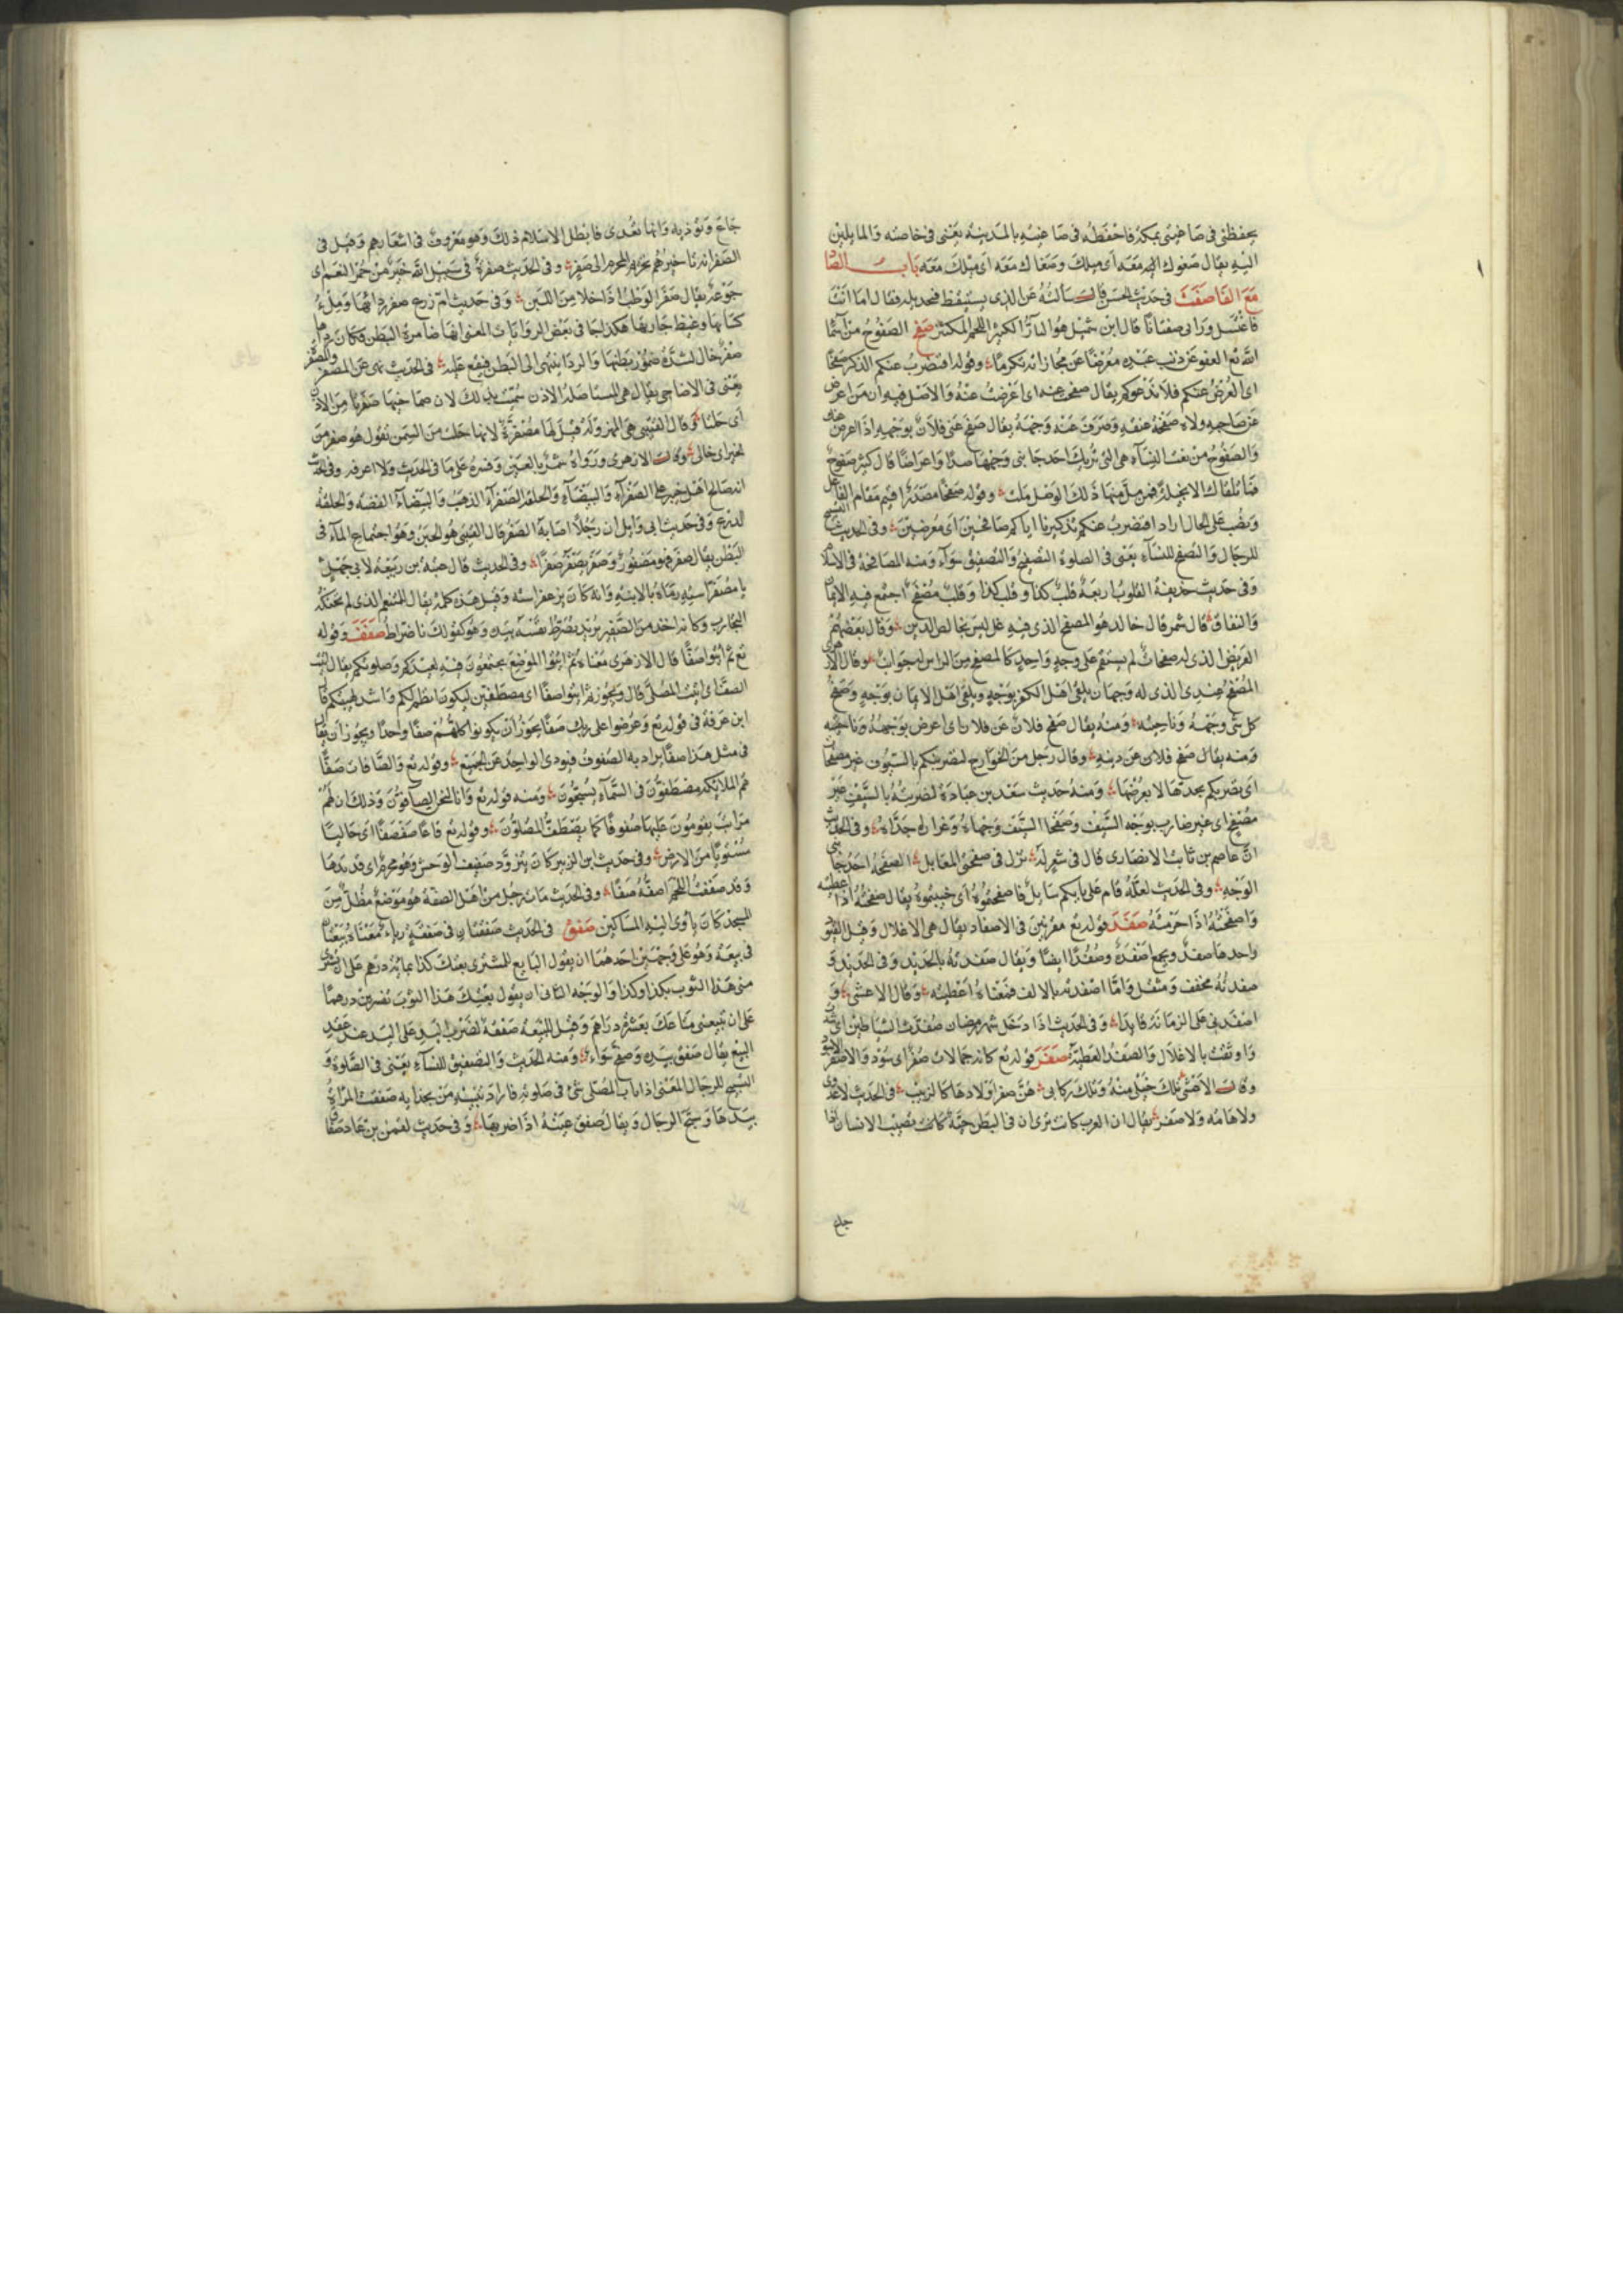 يحفظني في صاغيتي بمكة فاحفظه في صاغيته بالمدينة يعني في خاصته والمايلين
اليه يقال صغوك اليه معه اى ميلك وصغاك معه اى ميلك معه باب الصاد
مع الفا صفت في حديث الحسن قال سالته عن الذى يستيقظ فيجد بلة فقال اما انت
فاغتسل ورانى صفتاتا قال ابن شميل هو التار الكثير اللحم المكتنز صفح الصفوح من اسما
الله تع العفو عن ذنب عبده معرضا عن مجازاته تكرما وقوله افنضرب عنكم الذكر صفحا
اى انعرض عنكم فلا ندعوكم يقال صفح عنه اى اعرضت عنه والاصل فيه ان من اعرض
عن صاحبه ولاه صفحة عنقه وصرف عنه وجهه يقال صفح عنى فلان بوجهه اذا اعرض عنه
والصفوح من نعت النساء هى التى تريك احد جانبى وجهها صدا واعراضا قال كثير صفوح
فما تلقاك الا بخيلة فمن مل منها ذلك الوصل ملت وقوله صفحا مصدر اقيم مقام الفاعل
ونصب على الحال اراد افنضرب عنكم تذكيرنا اياكم صافحين اى معرضين وفى الحديث التسبيح
للرجال والتصفح للنساء يعنى فى الصلوة التصفيح والتصفيق سواء ومنه المصافحة فى الاسلام
وفى حديث حذيفة القلوب اربعة قلب كذا وقلب كذا وقلب مصفح اجتمع فيه الايمان
والنفاق قال شمر قال خالد هو المصفح الذى فيه غل ليس بخالص الدين وقال بعضهم
العريض الذى له صفحات لم يستقم على وجه واحد كالمصفح من الراس له جوانب وقال الازهرى
المصفح عندى الذى له وجهان يلقى اهل الكفر بوجه ويلقى اهل الايمان بوجه وصفح
كل شى وجهه وناحيته ومنه يقال صفح فلان عن فلان اى اعرض بوجهه وناحيته
ومنه يقال صفح فلان عن دينه وقال رجل من الخوارج لنضربنكم بالسيوف غير مصفحات
اى نضربكم بحدها لا بعرضها ومنه حديث سعد بن عبادة لضربته بالسيف غير
مصفح اى غير ضارب بوجه السيف وصفحا السيف وجهاه وغراره حداه وفى الحديث
ان عاصم بن ثابت الانصارى قال فى شعر له تزل فى صفحتى المعابل الصفحة احد جانبى
الوجه وفى الحديث لعله قام على بابكم سايل فاصفحتموه اى خيبتموه يقال صفحته اذا اعطيته
واصفحته اذا حرمته صفد قوله تع مقرنين فى الاصفاد يقال هى الاغلال وقيل القيود
واحدها صفد ويجمع اصفدة وصفدا ايضا ويقال صفدته بالحديد وفى الحديد و
صفدته مخفف ومثقل واما اصفدته بالالف فمعناه اعطيته وقال الاعشى و
اصفدنى على الزمانة قايدا وفى الحديث اذا دخل شهر رمضان صفدت الشياطين اى شدت
واوثقت بالاغلال والصفد العطية صفر قوله تع كانه جمالات صفر اى سود والاصفر الاسود
وقال الاعشى تلك خيلى منه وتلك ركابى هن صفر اولادها كالزبيب فى الحديث لا عدوى
ولا هامة ولا صفر يقال ان العرب كانت ترى ان فى البطن حية كانت تصيب الانسان اذا
جاع
جاع وتؤذيه وانها تعدى فابطل الاسلام ذلك وهو معروف فى اشعارهم وقيل فى
الصفر انه تاخيرهم تحريم المحرم الى صفر وفى الحديث صفرة فى سبيل الله خير من حمر النعم اى
جوعة يقال صفر الوطب اذا خلا من اللبن وفى حديث ام زرع صفر ردائها ومل
كسايها وغيظ جارتها هكذا جا فى بعض الروايات المعنى انها ضامرة البطن فكان رداها
صفر خال لشدة ضمور بطنها والردا ينتهى الى البطن فيقع عليه فى الحديث نهى عن المصفرة
يعنى فى الاضاحى يقال هى المستاصلة الاذن سميت بذلك لان صماخيها صفرتا من الاذن
اى خلتا وقال القتيبى هى المهزولة قيل لها مصفرة لانها خلت من السمن تقول هو صفر من
الخير اى خالى وقال الازهرى ورواه شمر بالغين وفسره على ما فى الحديث ولا اعرفه وفى الحديث
انه صالح اهل خيبر على الصفراء والبيضاء والحلقة الصفراء الذهب والبيضاء الفضة والحلقة
الدرع وفى حديث ابى وايل ان رجلا اصابه الصفر قال القتيبى هو الحبن وهو اجتماع الماء فى
البطن يقال صفر فهو مصفور وصفر يصفر صفرا وفى الحديث قال عتبة بن ربيعة لابى جهل
يا مصفر استه رماه بالابنة وانه كان يزعفر استه وقيل هذه كلمة يقال للمتنعم الذى لم تحنكه
التجارب وكانه اخذ من الصفير يريد يضرط نفسه بيده وهو كقولك ناضراط صفف وقوله
تع ثم ائتوا صفا قال الازهرى معناه ثم ائتوا الموضع يجتمعون فيه لعيدكم وصلوتكم يقال اتيت
الصف اى اتيت المصلى قال ويجوز ثم ائتوا صفا اى مصطفين ليكون انظم لكم واشد لهيبتكم قال
ابن عرفة فى قوله تع وعرضوا على ربك صفا يجوز ان يكونوا كلهم صفا واحدا ويجوز ان يقال
فى مثل هذا صفا يراد به الصفوف فيودى الواحد عن الجميع وقوله تع والصافات صفا
هم الملايكة مصطفون فى السماء يسبحون ومنه قوله تع وانا لنحن الصافون وذلك ان لهم
مراتب يقومون عليها صفوفا كما يصطف المصلون وقوله تع قاعا صفصفا اى خاليا
مستويا من الارض وفى حديث ابن الزبير كان يتزود صفيف الوحش وهو محرم اى قديدها
وقد صففت اللحم اصفه صفا وفى الحديث مات رجل من اهل الصفة هو موضع مظلل من
المسجد كان ياوى اليه المساكين صفق فى الحديث صفقتان فى صفقة ربا معناه بيعتان
فى بيعة وهو على وجهين احدهما ان يقول البايع للمشترى بعتك كذا بمائة درهم على ان تشترى
منى هذا الثوب بكذا وكذا والوجه الثانى ان يقول بعتك هذا الثوب بعشرين درهما
على ان تبيعنى متاعك بعشرة دراهم وقيل للبيعة صفقة لضرب اليد على اليد عند عقد
البيع يقال صفق بيده وصفح سواء ومنه الحديث والتصفيق للنساء يعنى فى الصلوة و
التسبيح للرجال المعنى اذا ناب المصلى شئ فى صلوته فاراد تنبيه من بحذايه صفقت المراة
بيدها وسبح الرجال ويقال صفق عينه اذا ضربها وفى حديث لقمن بن عاد صفاق